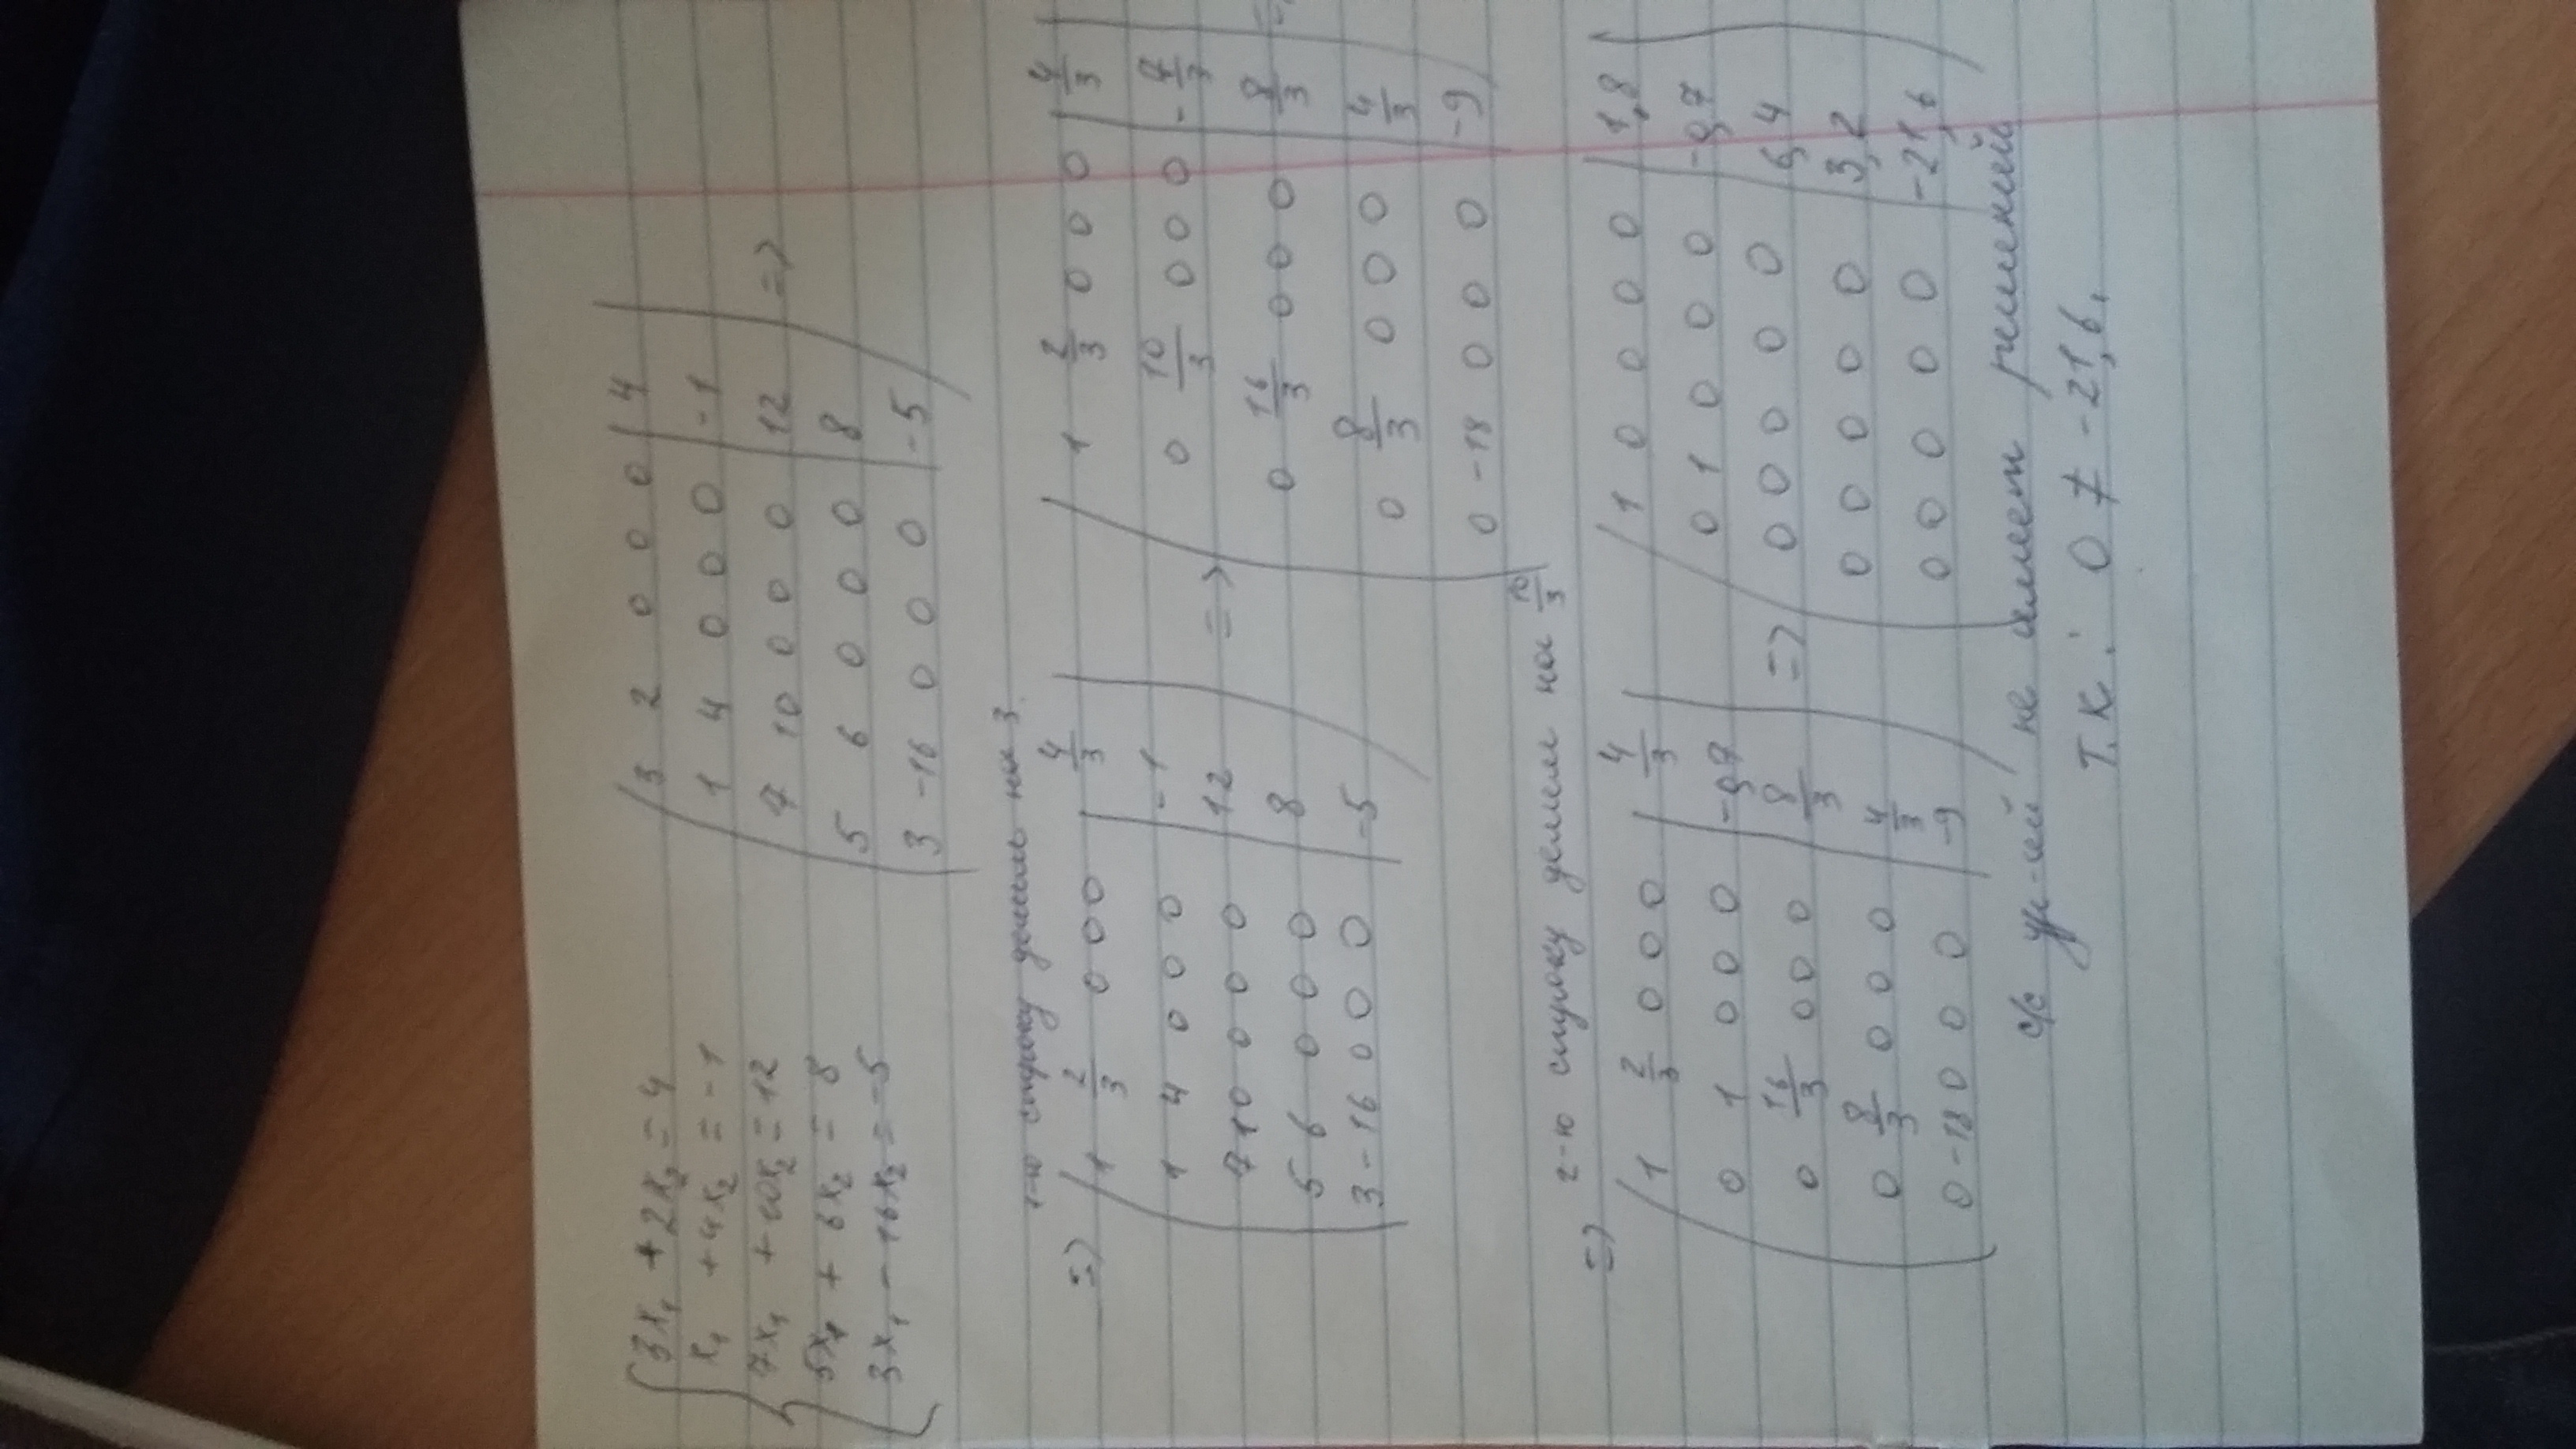 3x₁ + 2x₂ = 4
x₁ + 4x₂ = -1
7x₁ + 10x₂ = 12
5x₁ + 6x₂ = 8
3x₁ - 16x₂ = -5
( 3 2 0 0 0 | 4 )
1 4 0 0 0 | -1
7 10 0 0 0 | 12 =>
5 6 0 0 0 | 8
3 -16 0 0 0 | -5
1-ю строку делим на 3
=> ( 1 2/3 0 0 0 | 4/3 )
1 4 0 0 0 | -1
7 10 0 0 0 | 12 =>
5 6 0 0 0 | 8
3 -16 0 0 0 | -5
( 1 2/3 0 0 0 | 4/3 )
0 10/3 0 0 0 | -7/3
0 16/3 0 0 0 | 8/3 =
0 8/3 0 0 0 | 4/3
0 -18 0 0 0 | -9
2-ю строку делим на 10/3
=> ( 1 2/3 0 0 0 | 4/3 )
0 1 0 0 0 | -0,7
0 16/3 0 0 0 | 8/3 =>
0 8/3 0 0 0 | 4/3
0 -18 0 0 0 | -9
( 1 0 0 0 0 | 1,8 )
0 1 0 0 0 | -0,7
0 0 0 0 0 | 6,4
0 0 0 0 0 | 3,2
0 0 0 0 0 | -21,6
с/с ур-ий не имеет решений
т.к. 0 ≠ -21,6.